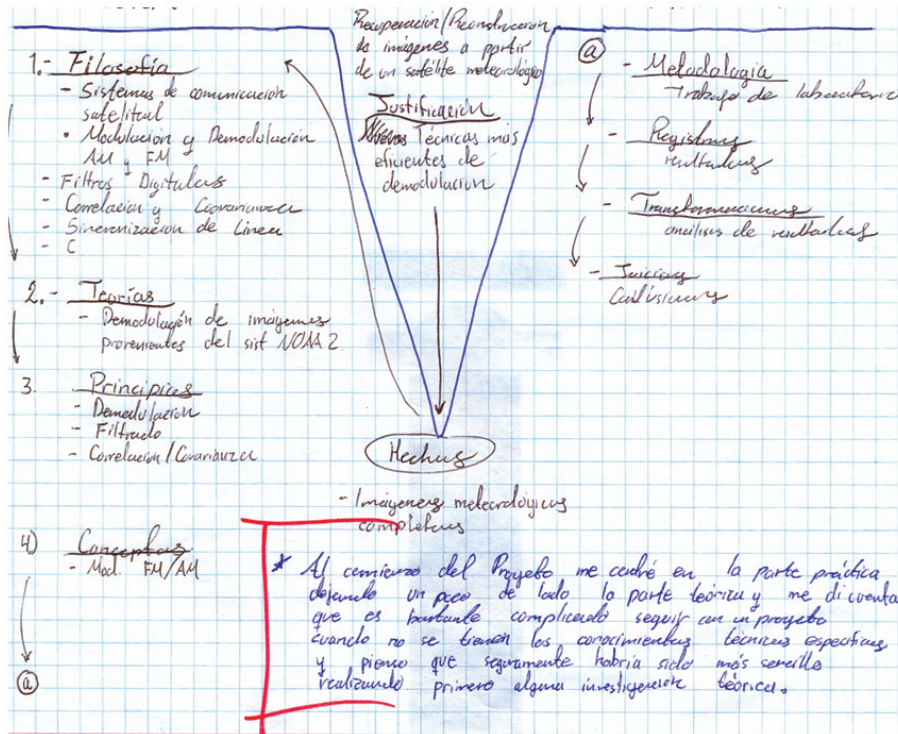 1.- Filosofía
- Sistemas de comunicación
satelital
• Modulación y Demodulación
AM y FM
- Filtros Digitales
- Correlación y Covarianza
- Sincronización de Línea
- C
2.- Teorías
- Demodulación de imágenes
provenientes del sist NOAA 2.
3. Principios
- Demodulación
- Filtrado
- Correlación/Covarianza
4) Conceptos
- Mod. FM/AM
a
Recuperación/Reconstrucción
de imágenes a partir
de un satélite meteorológico
Justificación
Nuevas Técnicas más
eficientes de
demodulación
Hechos
- Imágenes meteorológicas
completas
a
- Metodología
Trabajo de laboratorio
- Registros
resultados
- Transformaciones
análisis de resultados
- Juicios
Conlusiones
* Al comienzo del Proyecto me centré en la parte práctica
dejando un poco de lado la parte teórica y me di cuenta
que es bastante complicado seguir con un proyecto
cuando no se tienen los conocimientos técnicos específicos
y pienso que seguramente habría sido más sencillo
realizando primero alguna investigación teórica.